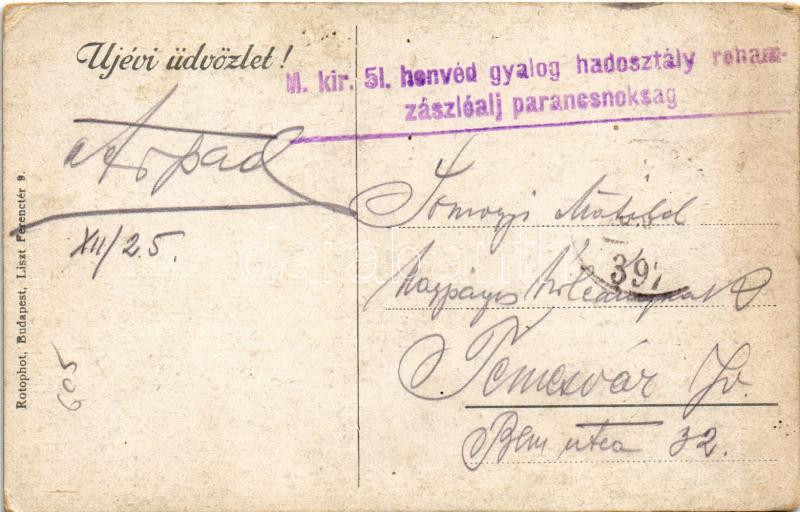 Ujévi üdvözlet!
M. kir. 51. honvéd gyalog hadosztály roham-
zászlóalj parancsnokság
Árpád
XII/25.
605
Somogyi Matild
Nagyságos
397
Temesvár Jv.
Bem utca 32.
Rotophot, Budapest, Liszt Ferenctér 9.